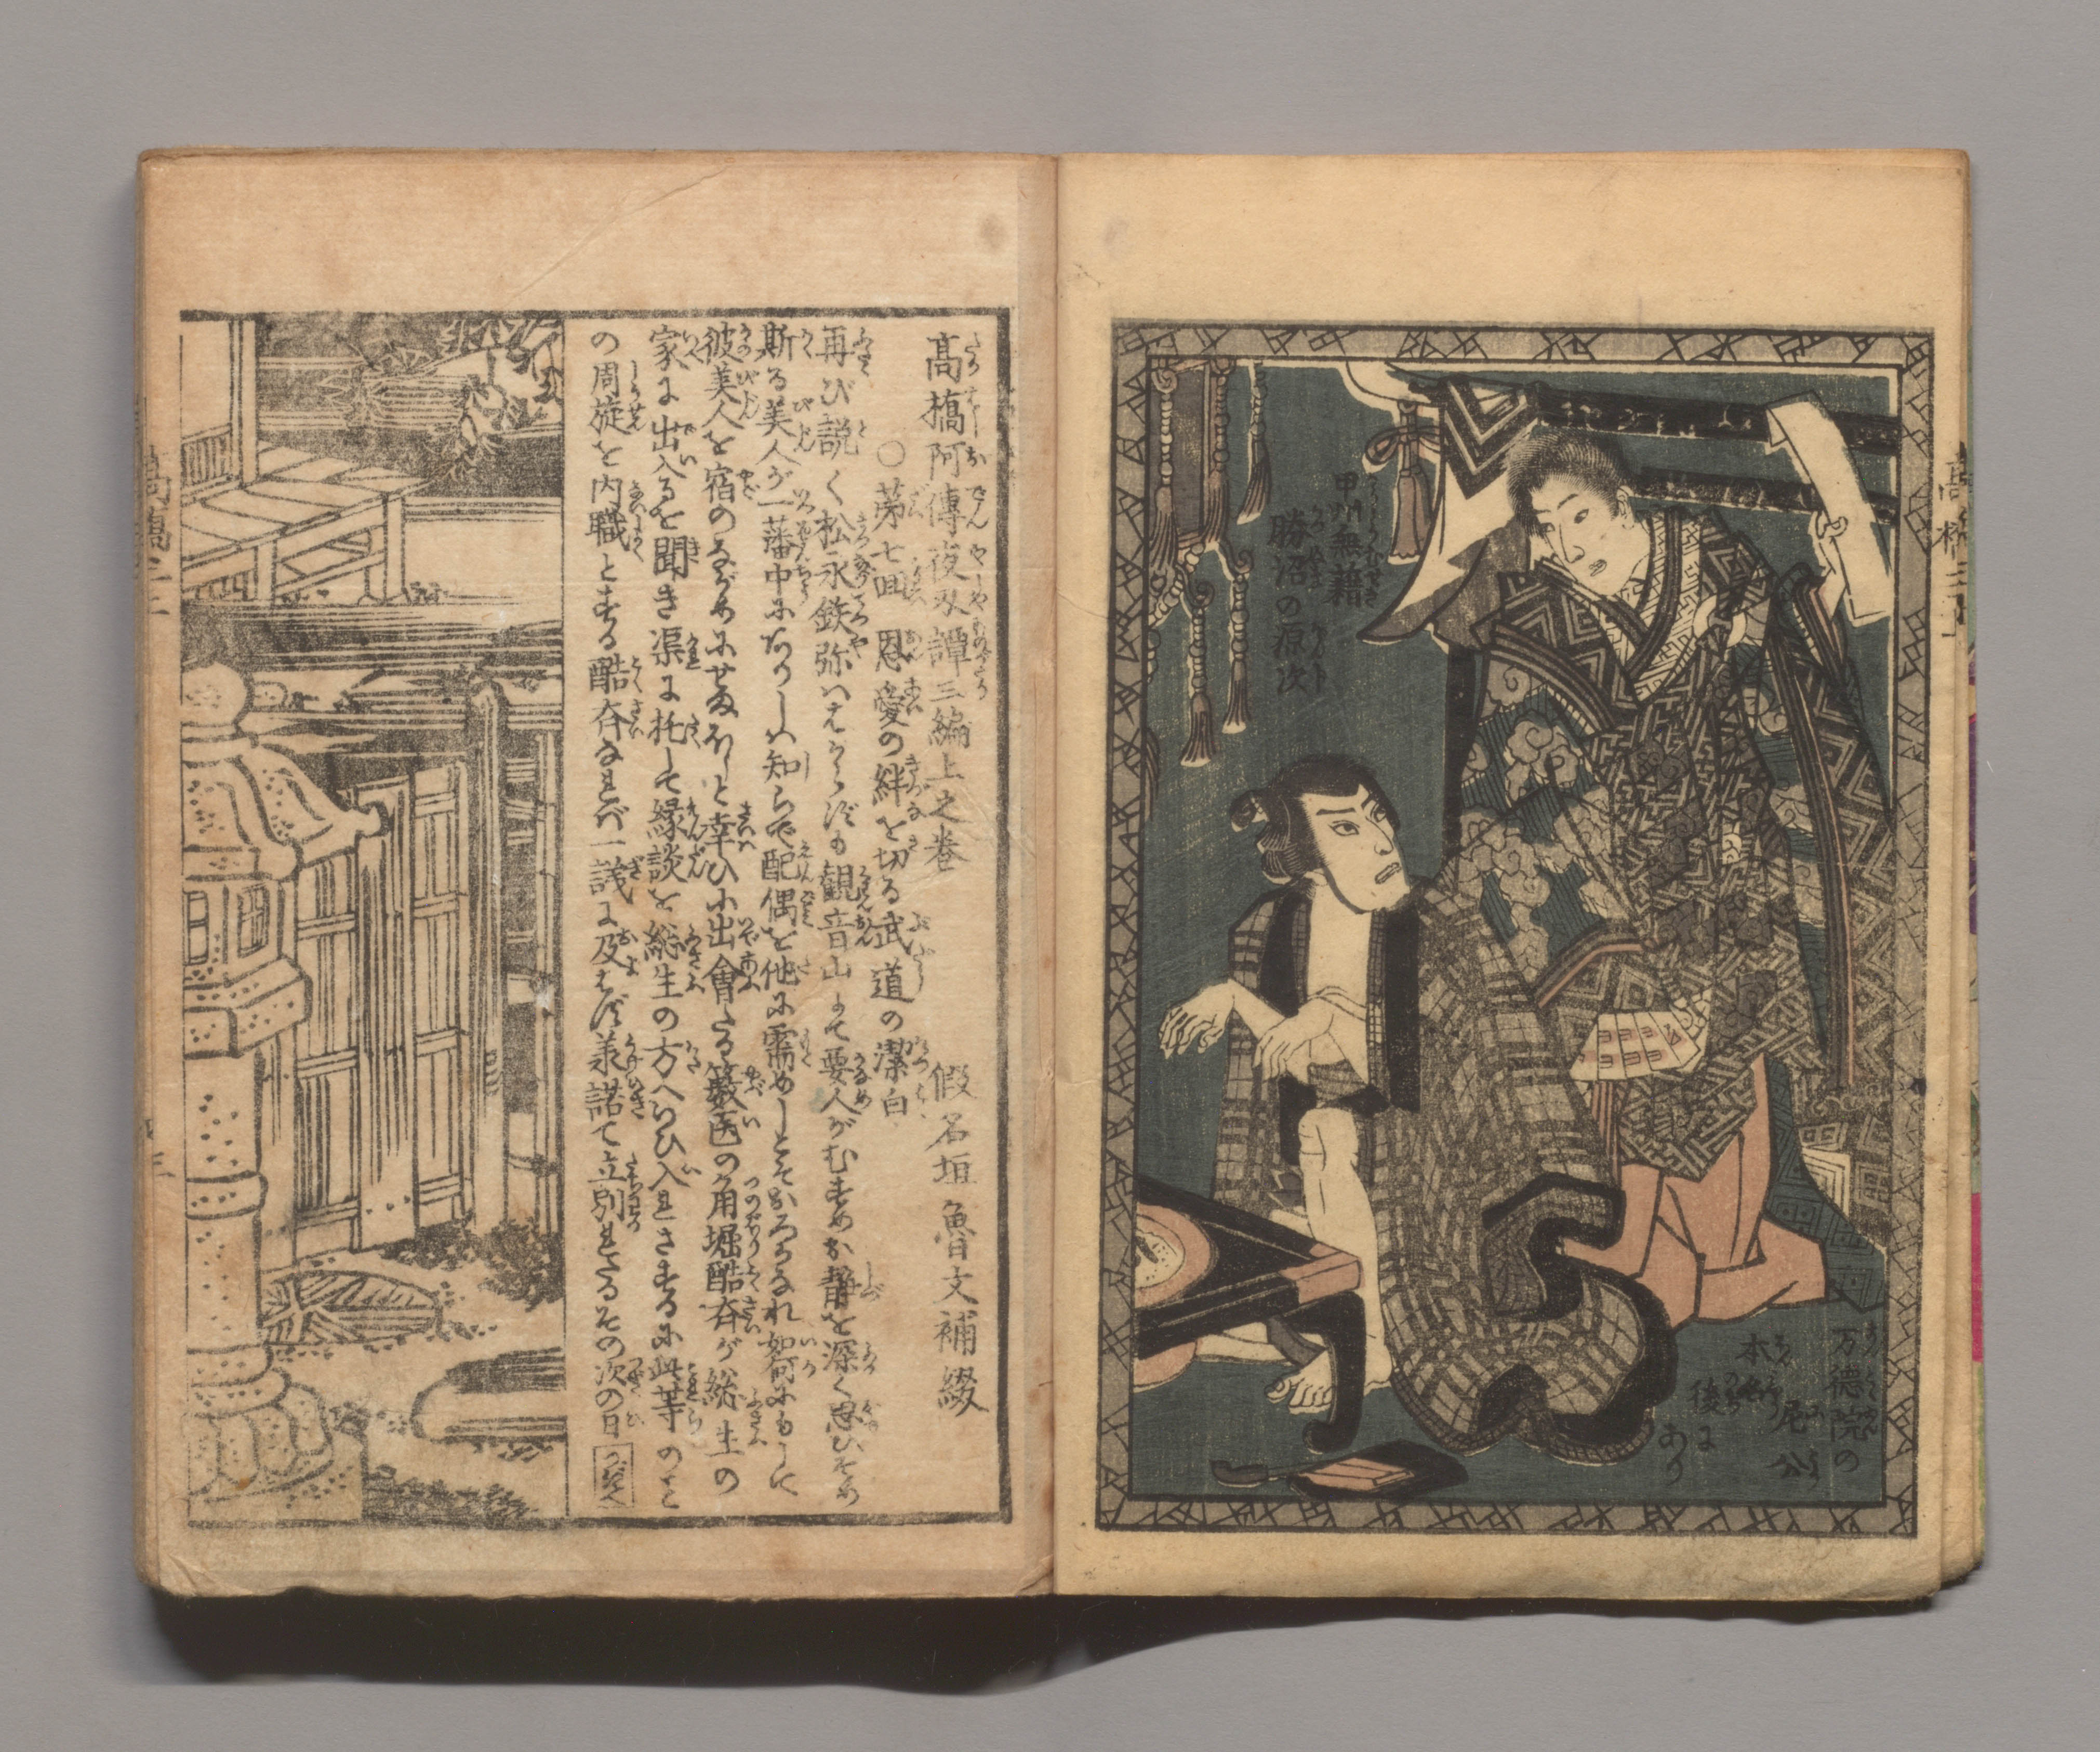 甲州無籍
勝沼の原次
万徳院の
尼公
本
後に
あり
高橋阿傳夜刄譚三編上之巻
假名垣魯文補綴
○苐七囬 恩愛の絆を切る武道の潔白
再び説く松永鉄弥ははからずも観音山にて要人がむすめお静を深く思ひそめ
斯る美人が一藩中にありしハ知らで配偶を他に需めしとそおろかなれ如何にもして
彼美人を宿のながめにせまほしと幸ひ小出會たる籔医の角堀酷斉が総生の
家に出入るを聞き渠に托して縁談を総生の方へいひ入れさするに此等のこと
の周旋を内職とする酷斉なれバ一議に及ばず羕諾て立別れたるその次の日
つぎへ